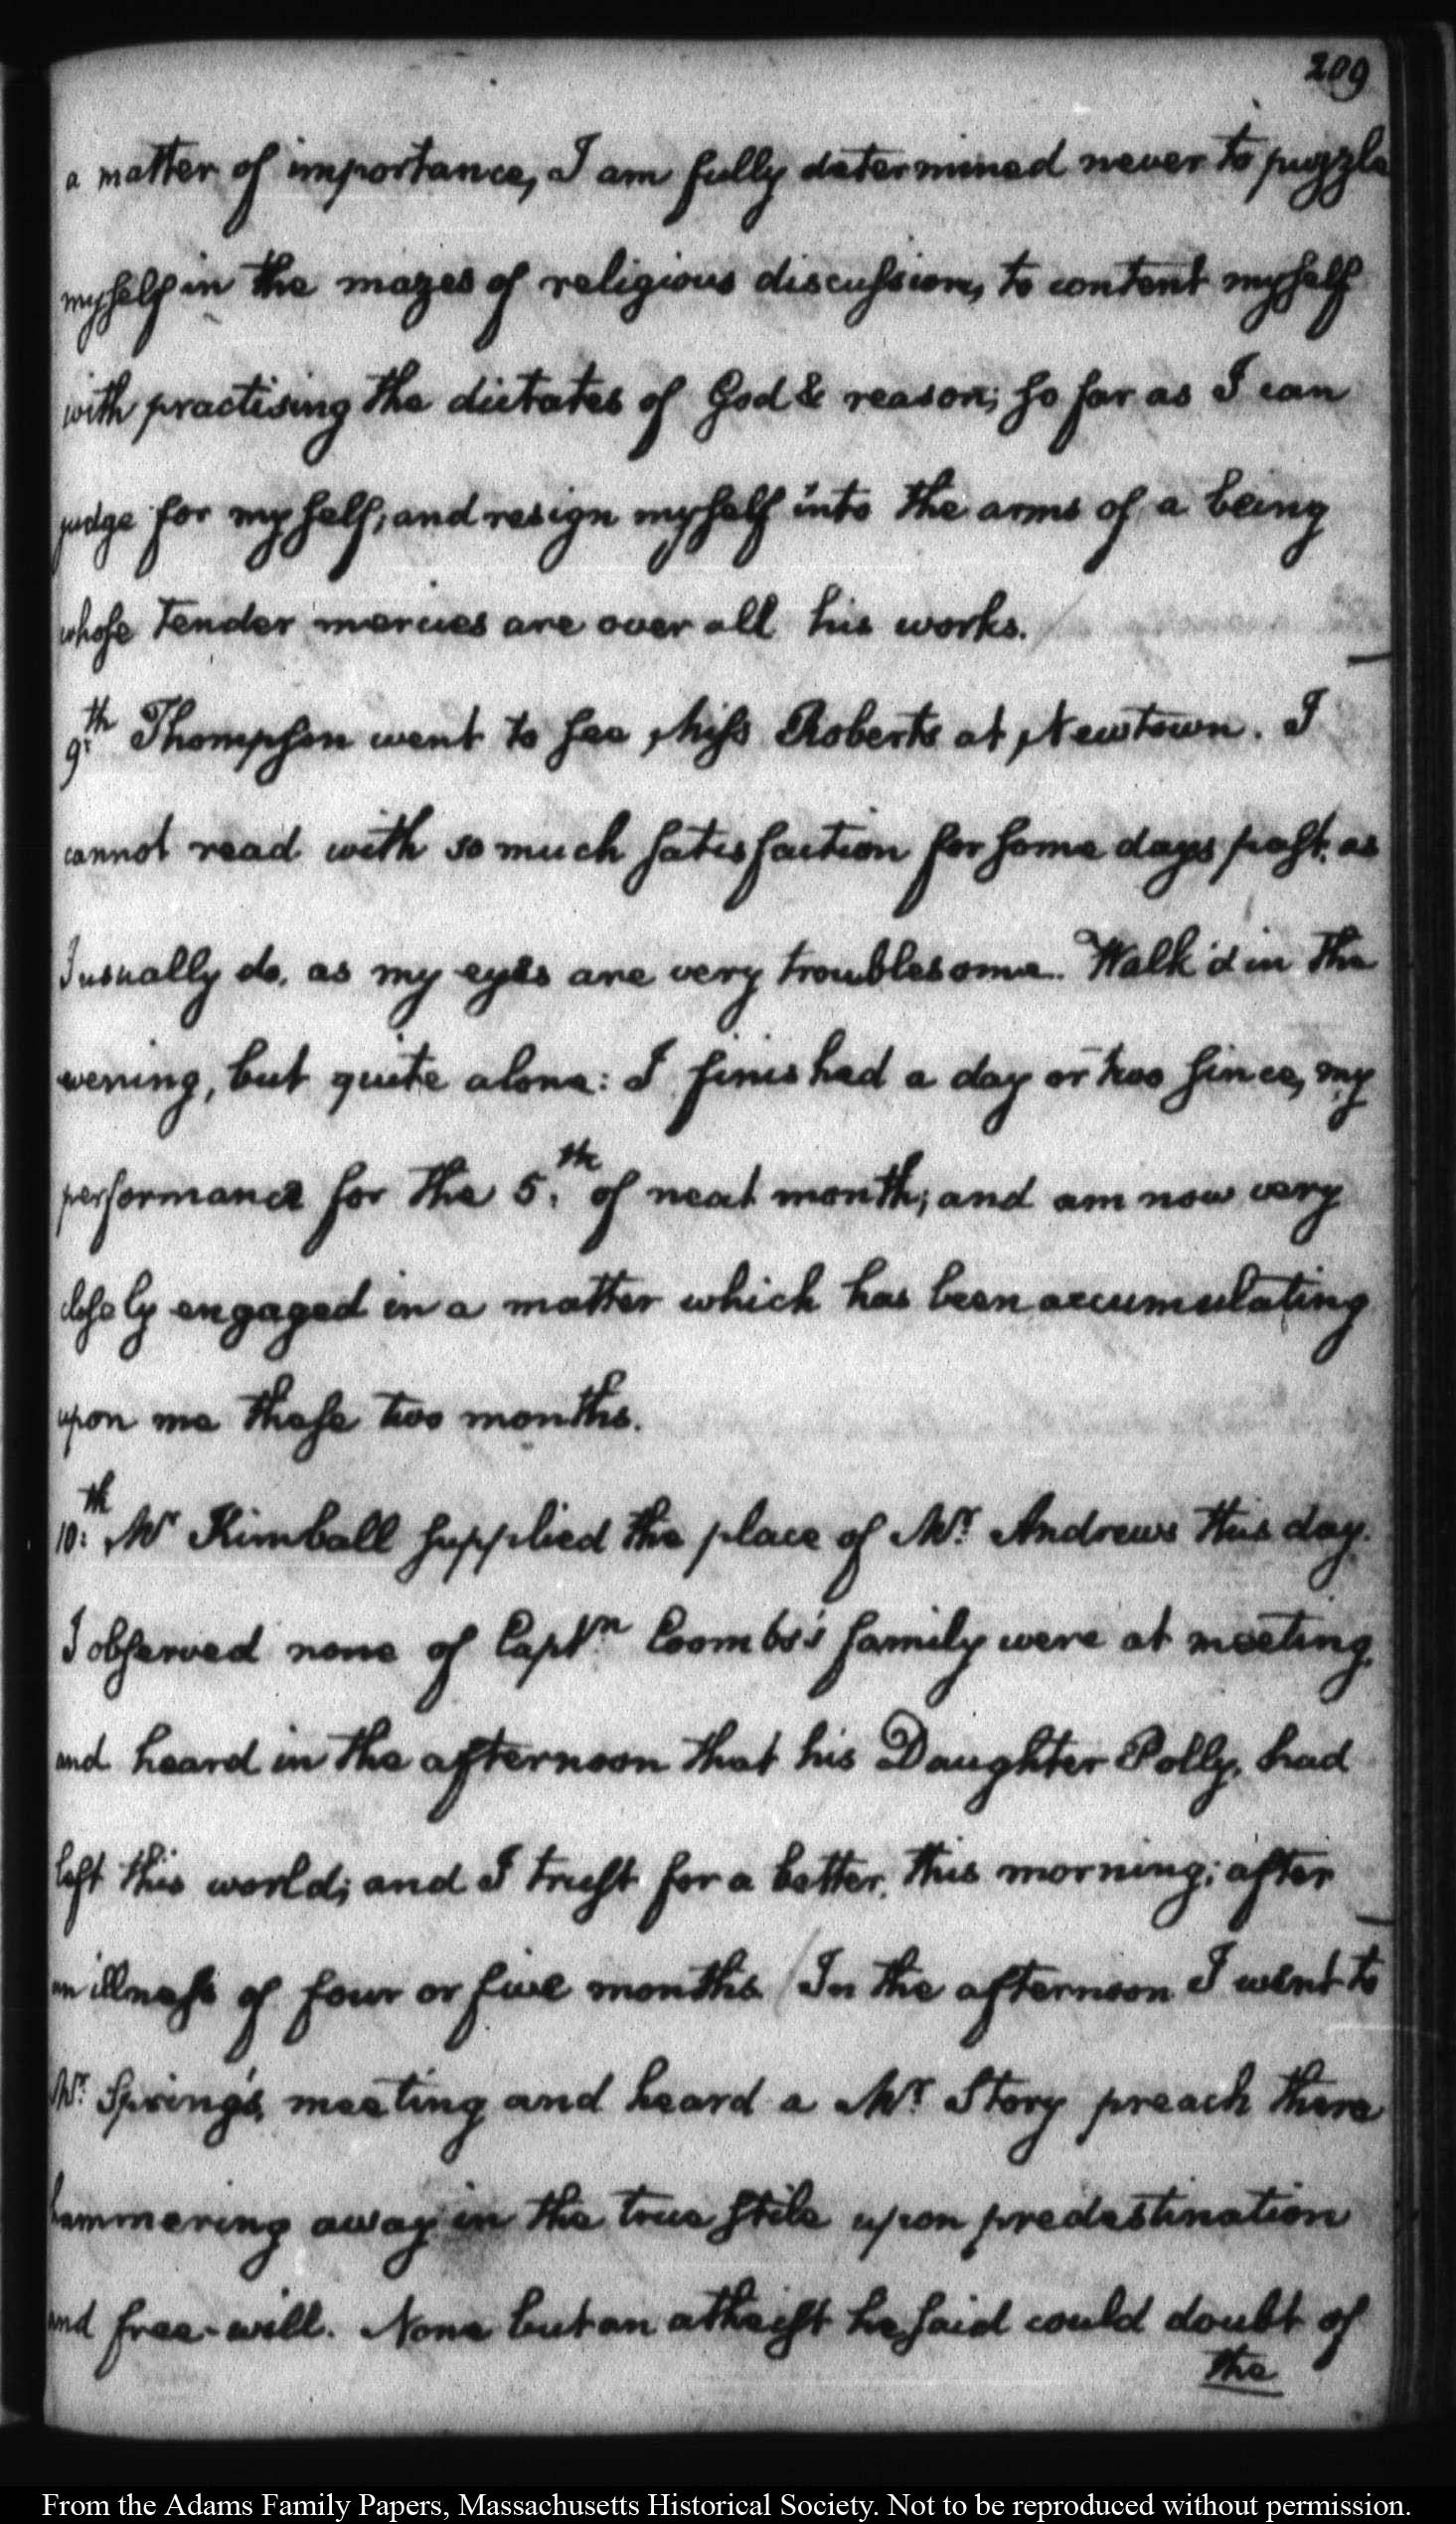 209
a matter of importance, I am fully determined never to puzzle
myself in the mazes of religious discussion, to content myself
with practising the dictates of God & reason; so far as I can
judge for myself; and resign myself into the arms of a being
whose tender mercies are over all his works.
9:th Thompson went to see Miss Roberts at Newtown. I
cannot read with so much satisfaction for some days past, as
I usually do, as my eyes are very troublesome. Walk'd in the
evening, but quite alone: I finished a day or two since, my
performance for the 5.th of next month; and am now very
closely engaged in a matter which has been accumulating
upon me these two months.
10:th Mr Kimball supplied the place of Mr. Andrews this day.
I observed none of Captn Coombs's family were at meeting,
and heard in the afternoon that his Daughter Polly, had
left this world; and I trust for a better, this morning; after
an illness of four or five months. In the afternoon I went to
Mr. Spring's meeting and heard a Mr. Story preach there
hammering away in the true stile upon predestination
and free-will. None but an atheist he said could doubt of
the
From the Adams Family Papers, Massachusetts Historical Society. Not to be reproduced without permission.